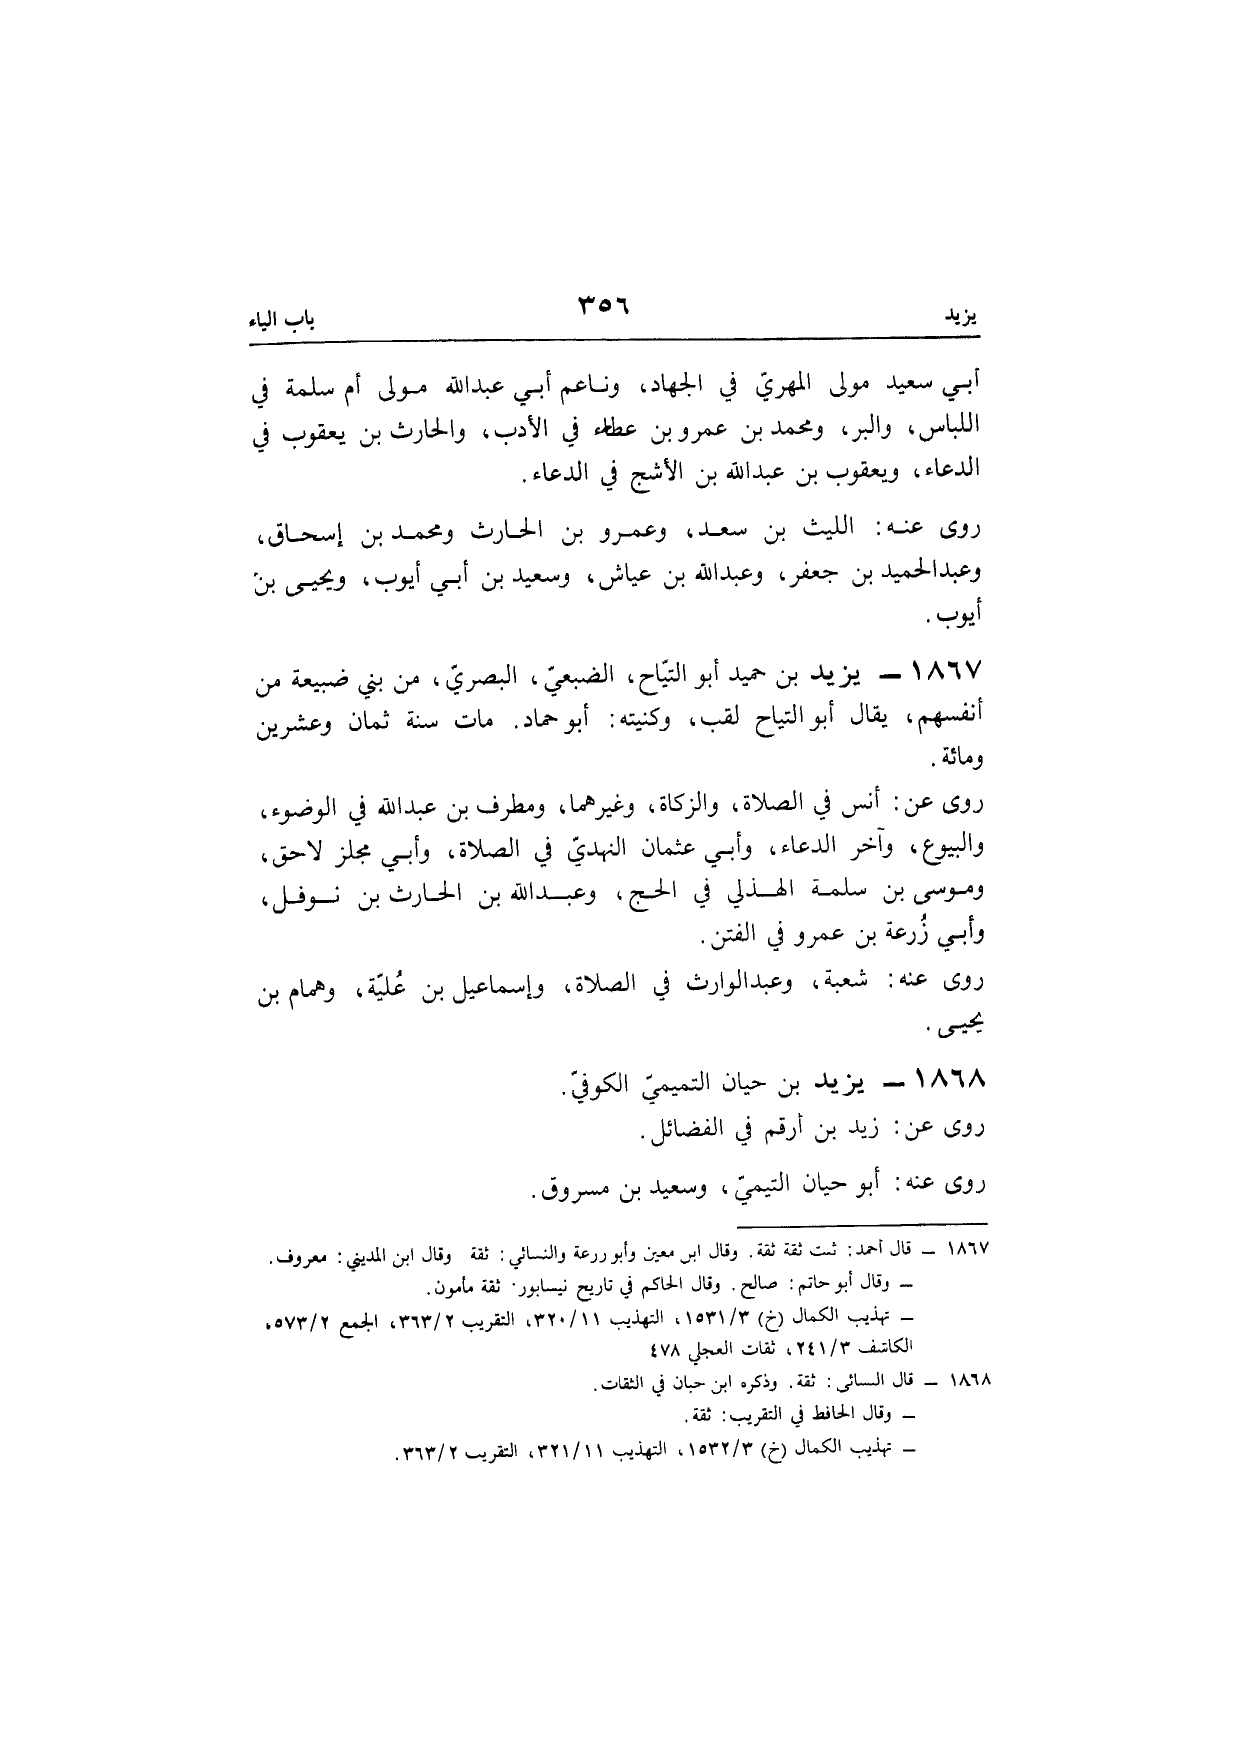 يزيد ٣٥٦ باب الياء
أبي سعيد مولى المهريّ في الجهاد، وناعم أبي عبدالله مولى أم سلمة في
اللباس، والبر، ومحمد بن عمرو بن عطاء في الأدب، والحارث بن يعقوب في
الدعاء، ويعقوب بن عبدالله بن الأشج في الدعاء.
روى عنه: الليث بن سعد، وعمرو بن الحارث ومحمد بن إسحاق،
وعبدالحميد بن جعفر، وعبدالله بن عياش، وسعيد بن أبي أيوب، ويحيى بن
أيوب.
١٨٦٧ ـ يزيد بن حميد أبو التيّاح، الضبعيّ، البصريّ، من بني ضبيعة من
أنفسهم، يقال أبو التياح لقب، وكنيته: أبو حماد. مات سنة ثمان وعشرين
ومائة.
روى عن: أنس في الصلاة، والزكاة، وغيرهما، ومطرف بن عبدالله في الوضوء،
والبيوع، وآخر الدعاء، وأبي عثمان النهديّ في الصلاة، وأبي مجلز لاحق،
وموسى بن سلمة الهذلي في الحج، وعبدالله بن الحارث بن نوفل،
وأبي زُرعة بن عمرو في الفتن.
روى عنه: شعبة، وعبدالوارث في الصلاة، وإسماعيل بن عُليّة، وهمام بن
يحيى.
١٨٦٨ ـ يزيد بن حيان التميميّ الكوفيّ.
روى عن: زيد بن أرقم في الفضائل.
روى عنه: أبو حيان التيميّ، وسعيد بن مسروق.
١٨٦٧ ـ قال أحمد: ثبت ثقة ثقة. وقال ابن معين وأبو زرعة والنسائي: ثقة وقال ابن المديني: معروف.
ـ وقال أبو حاتم: صالح. وقال الحاكم في تاريخ نيسابور· ثقة مأمون.
ـ تهذيب الكمال (خ) ١٥٣١/٣، التهذيب ٣٢٠/١١، التقريب ٣٦٣/٢، الجمع ٥٧٣/٢،
الكاشف ٢٤١/٣، ثقات العجلي ٤٧٨
١٨٦٨ ـ قال السائى: ثقة. وذكره ابن حبان في الثقات.
ـ وقال الحافط في التقريب: ثقة.
ـ تهذيب الكمال (خ) ١٥٣٢/٣، التهذيب ٣٢١/١١، التقريب ٣٦٣/٢.